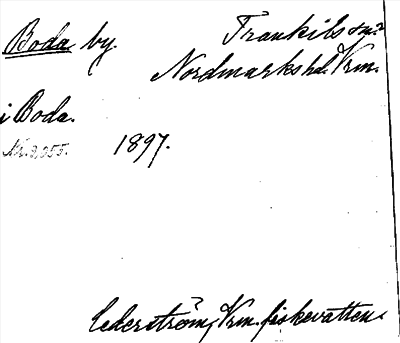 Boda by. Frankils sn.
Nordmarks hd. Vrm.
i Boda.
Nr. 2,055. 1897.
Cederström, Vrm. fiskevatten.